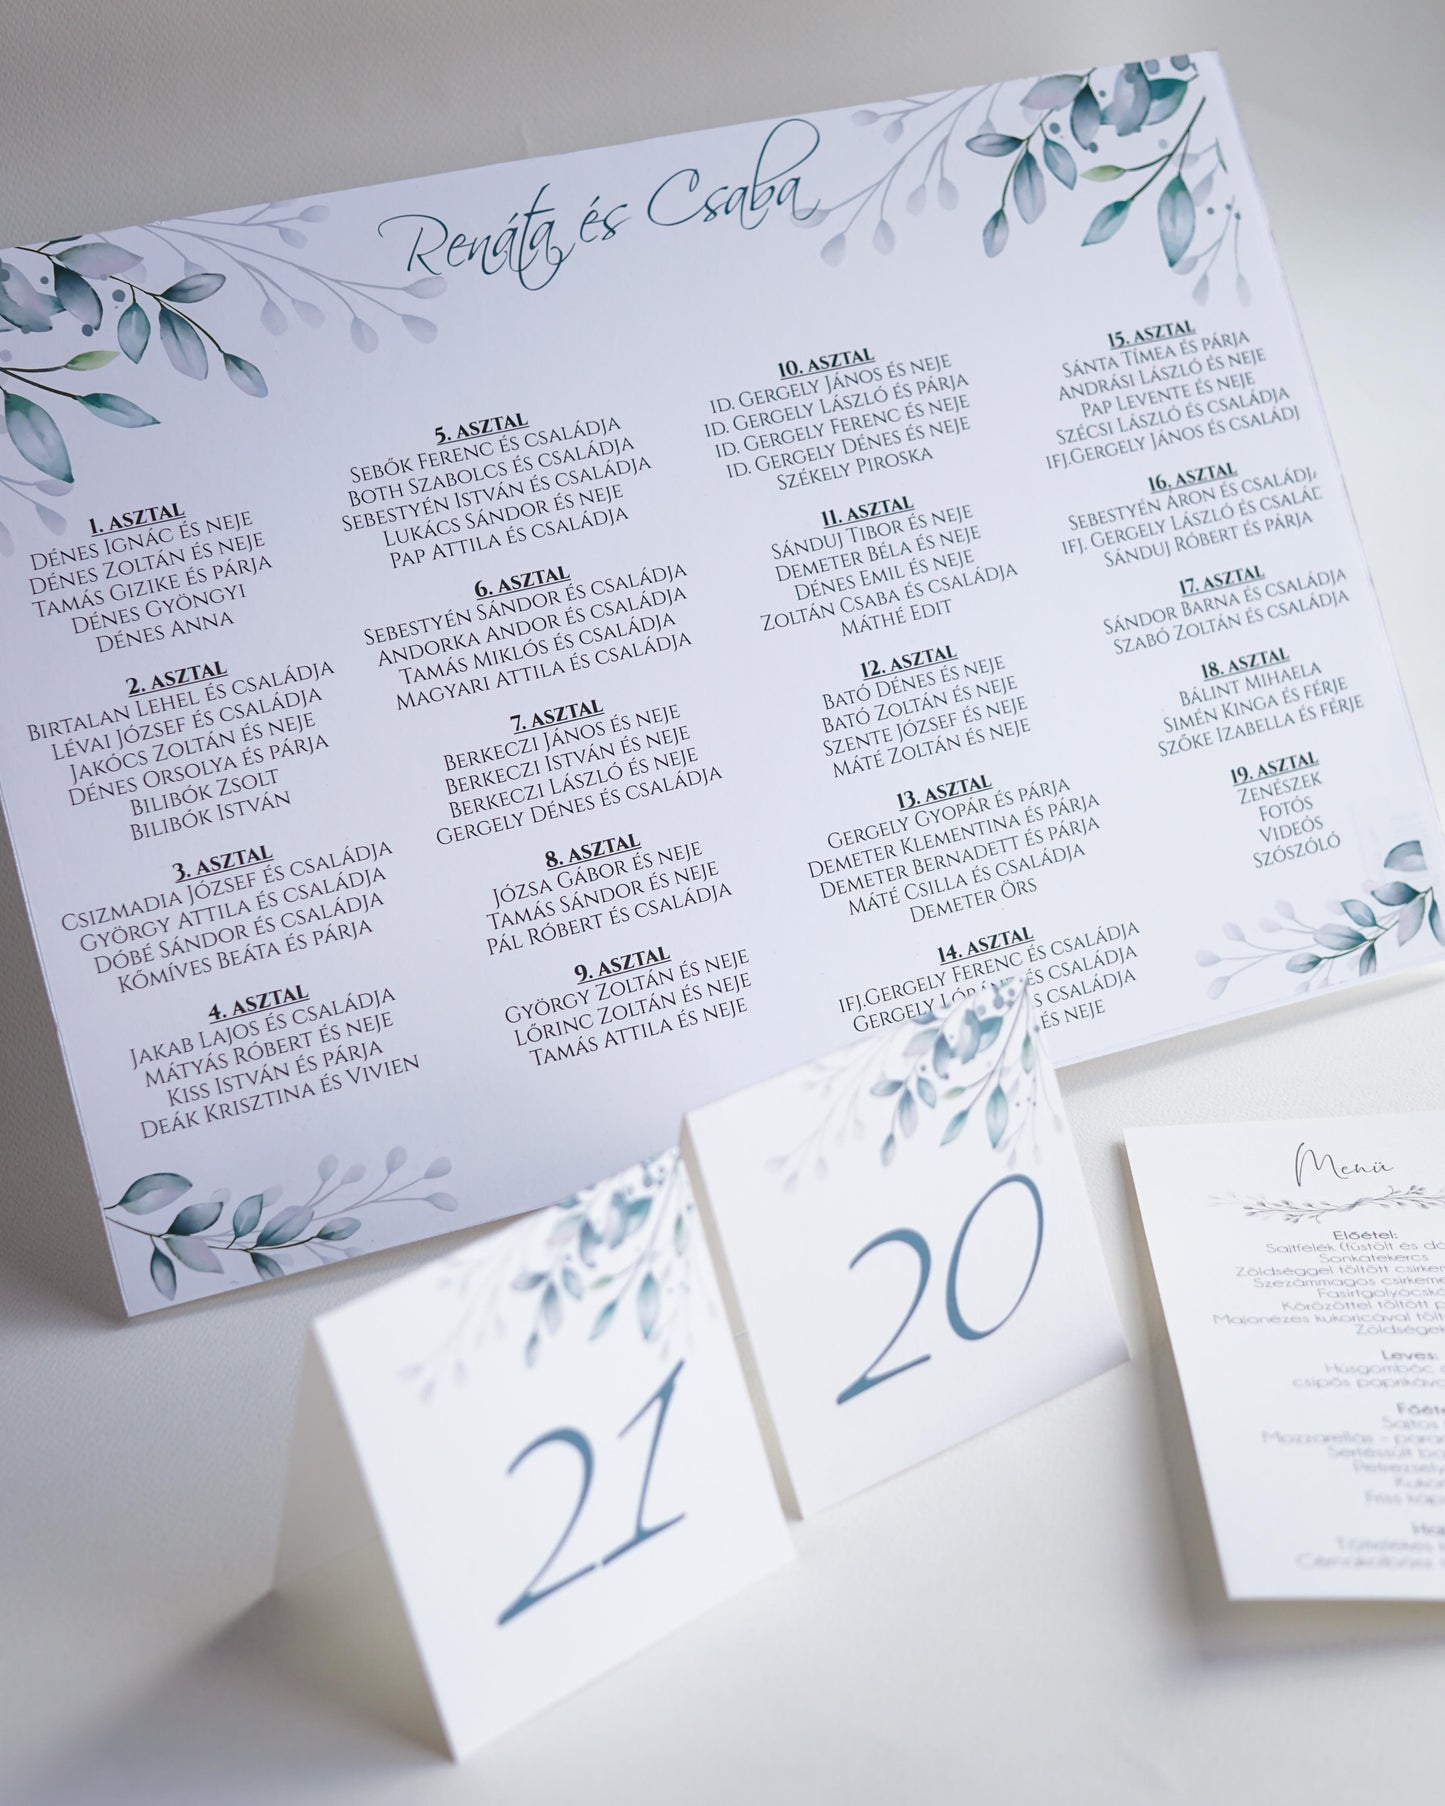 Renáta és Csaba
1. ASZTAL
DÉNES IGNÁC ÉS NEJE
DÉNES ZOLTÁN ÉS NEJE
TAMÁS GIZIKE ÉS PÁRJA
DÉNES GYÖNGYI
DÉNES ANNA
2. ASZTAL
BIRTALAN LEHEL ÉS CSALÁDJA
LÉVAI JÓZSEF ÉS CSALÁDJA
JAKÓCS ZOLTÁN ÉS NEJE
DÉNES ORSOLYA ÉS PÁRJA
BILIBÓK ZSOLT
BILIBÓK ISTVÁN
3. ASZTAL
CSIZMADIA JÓZSEF ÉS CSALÁDJA
GYÖRGY ATTILA ÉS CSALÁDJA
DÓBÉ SÁNDOR ÉS CSALÁDJA
KŐMÍVES BEÁTA ÉS PÁRJA
4. ASZTAL
JAKAB LAJOS ÉS CSALÁDJA
MÁTYÁS RÓBERT ÉS NEJE
KISS ISTVÁN ÉS PÁRJA
DEÁK KRISZTINA ÉS VIVIEN
5. ASZTAL
SEBŐK FERENC ÉS CSALÁDJA
BOTH SZABOLCS ÉS CSALÁDJA
SEBESTYÉN ISTVÁN ÉS CSALÁDJA
LUKÁCS SÁNDOR ÉS NEJE
PAP ATTILA ÉS CSALÁDJA
6. ASZTAL
SEBESTYÉN SÁNDOR ÉS CSALÁDJA
ANDORKA ANDOR ÉS CSALÁDJA
TAMÁS MIKLÓS ÉS CSALÁDJA
MAGYARI ATTILA ÉS CSALÁDJA
7. ASZTAL
BERKECZI JÁNOS ÉS NEJE
BERKECZI ISTVÁN ÉS NEJE
BERKECZI LÁSZLÓ ÉS NEJE
GERGELY DÉNES ÉS CSALÁDJA
8. ASZTAL
JÓZSA GÁBOR ÉS NEJE
TAMÁS SÁNDOR ÉS NEJE
PÁL RÓBERT ÉS CSALÁDJA
9. ASZTAL
GYÖRGY ZOLTÁN ÉS NEJE
LŐRINC ZOLTÁN ÉS NEJE
TAMÁS ATTILA ÉS NEJE
10. ASZTAL
ID. GERGELY JÁNOS ÉS NEJE
ID. GERGELY LÁSZLÓ ÉS PÁRJA
ID. GERGELY FERENC ÉS NEJE
ID. GERGELY DÉNES ÉS NEJE
SZÉKELY PIROSKA
11. ASZTAL
SÁNDUJ TIBOR ÉS NEJE
DEMETER BÉLA ÉS NEJE
DÉNES EMIL ÉS NEJE
ZOLTÁN CSABA ÉS CSALÁDJA
MÁTHÉ EDIT
12. ASZTAL
BATÓ DÉNES ÉS NEJE
BATÓ ZOLTÁN ÉS NEJE
SZENTE JÓZSEF ÉS NEJE
MÁTÉ ZOLTÁN ÉS NEJE
13. ASZTAL
GERGELY GYOPÁR ÉS PÁRJA
DEMETER KLEMENTINA ÉS PÁRJA
DEMETER BERNADETT ÉS PÁRJA
MÁTÉ CSILLA ÉS CSALÁDJA
DEMETER ÖRS
14. ASZTAL
IFJ.GERGELY FERENC ÉS CSALÁDJA
GERGELY LÓRÁNT ÉS CSALÁDJA
S CSALÁDJA
ÉS NEJE
15. ASZTAL
SÁNTA TÍMEA ÉS PÁRJA
ANDRÁSI LÁSZLÓ ÉS NEJE
PAP LEVENTE ÉS NEJE
SZÉCSI LÁSZLÓ ÉS CSALÁDJA
IFJ.GERGELY JÁNOS ÉS CSALÁDJ
16. ASZTAL
SEBESTYÉN ÁRON ÉS CSALÁDJ
IFJ. GERGELY LÁSZLÓ ÉS CSALÁD
SÁNDUJ RÓBERT ÉS PÁRJA
17. ASZTAL
SÁNDOR BARNA ÉS CSALÁDJA
SZABÓ ZOLTÁN ÉS CSALÁDJA
18. ASZTAL
BÁLINT MIHAELA
SIMÉN KINGA ÉS FÉRJE
SZŐKE IZABELLA ÉS FÉRJE
19. ASZTAL
ZENÉSZEK
FOTÓS
VIDEÓS
SZÓSZÓLÓ
20
21
Menü
Előétel:
Sajtfélék (füstölt és
Sonkatekercs
Zöldséggel töltött
Szezámmagos
Fasírtgolyócskák
Körözöttel töltött
Majonézes kukoricával
Leves:
Húsgombóc
csípős